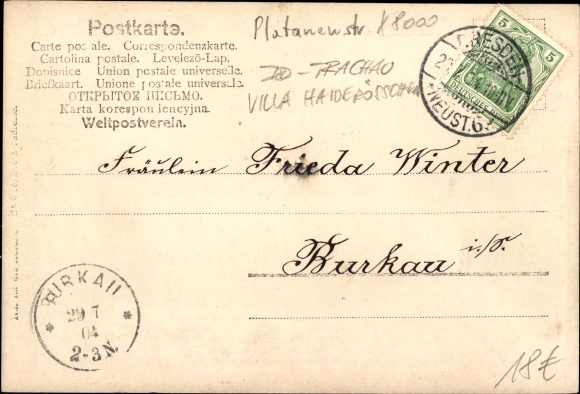 Postkarte.
Carte postale. Correspondenzkarte.
Cartolina postale. Levelező-Lap.
Dopisnice Union postale universelle.
Briefkaart. Unione postale universale.
ОТКРЫТОЕ ПИСЬМО.
Karta korespondencyjna.
Weltpostverein.
Platanenstr. K 8000
DD-TRACHAU
VILLA HAIDERÖSSCHEN
5
DRESDEN
NEUST. 6
Fräulein Frieda Winter
i/S.
Burkau
BURKAU
29 7
04
2-3 N.
18€